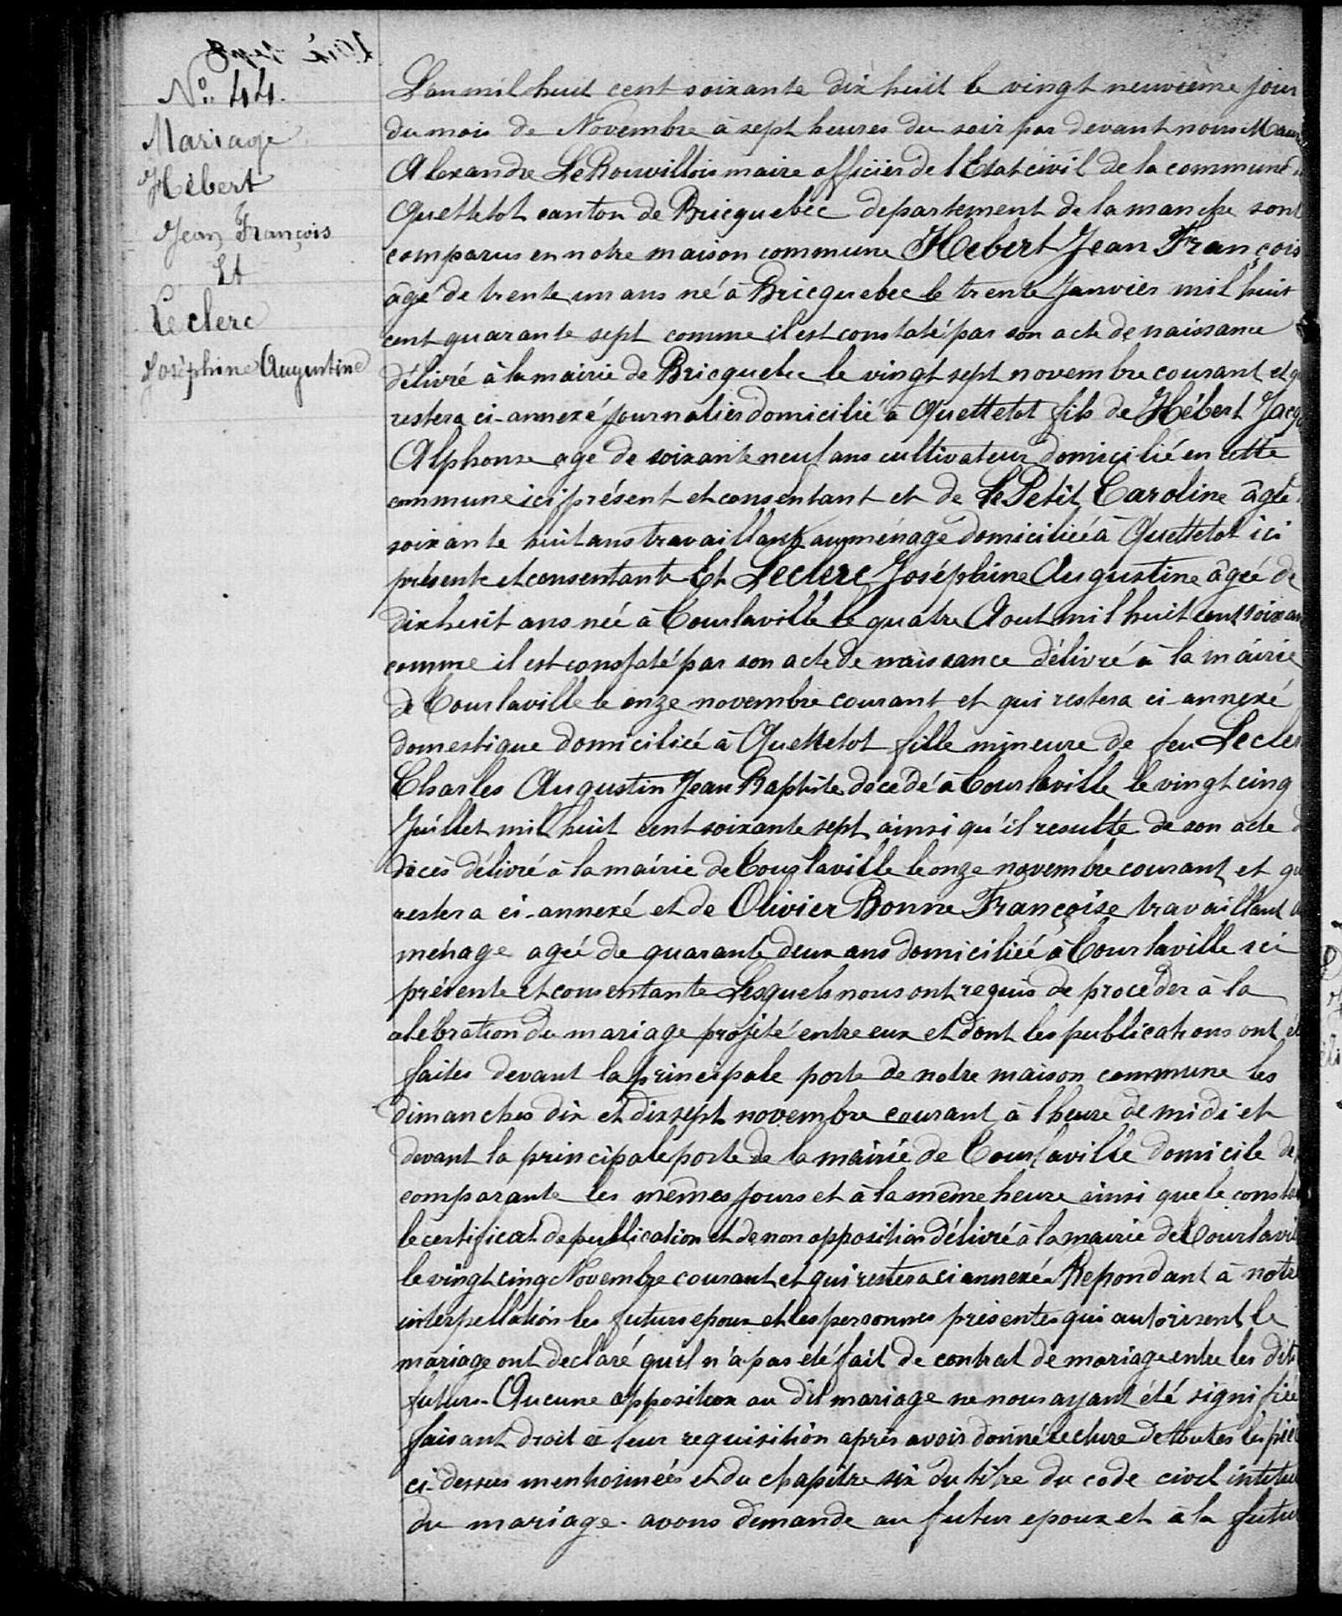 No. 44.
Mariage
Hébert
Jean François
Et
Leclerc
Joséphine Augustine
L'an mil huit cent soixante dix huit le vingt neuvième jour
du mois de Novembre à sept heures du soir par devant nous
Alexandre LeRouvillois maire officier de l'Etat civil de la commune
Quettetot canton de Bricquebec departement de la manche sont
comparus en notre maison commune Hebert Jean François
âgé de trente un ans né à Bricquebec le trente Janvier mil huit
cent quarante sept comme il est constaté par son acte de naissance
délivré à la mairie de Bricquebec le vingt sept novembre courant et qu
restera ci-annexé journalier domicilié à Quettetot fils de Hébert Jacq
Alphonse agé de soixante neuf ans cultivateur domicilié en cette
commune ici présent et consentant et de LePetit Caroline âgée
soixante huit ans travaillant au ménage domiciliée à Quettetot ici
présente et consentante Et Leclerc Joséphine Augustine âgée de
dix huit ans née à Tourlaville le quatre Aout mil huit cent soixan
comme il est constaté par son acte de naissance délivré à la mairie
de Tourlaville le onze novembre courant et qui restera ci annexé
domestique domiciliée à Quettetot fille mineure de feu Lecler
Charles Augustin Jean Baptiste décédé à Tourlaville le vingt cinq
Juillet mil huit cent soixante sept ainsi qu'il resulte de son acte d
décès délivré à la mairie de Tourlaville le onze novembre courant et qu
restera ci-annexé et de Olivier Bonne Françoise travaillant
ménage agée de quarante deux ans domiciliée à Tourlaville ici
présente et consentante Lesquels nous ont requis de procéder à la
célébration du mariage projeté entre eux et dont les publications ont é
faites devant la principale porte de notre maison commune les
dimanches dix et dix sept novembre courant à l'heure de midi et
devant la principale porte de la mairie de Tourlaville domicile de
comparante les mêmes jours et à la même heure ainsi que le consta
le certificat de publication et de non opposition délivré à la mairie de Tourlavil
le vingt cinq Novembre courant et qui restera ci annexé Repondant à notr
interpellation les futurs epoux et les personnes présentes qui autorisent le
mariage ont declaré qu'il n'a pas été fait de contrat de mariage entre les dits
futurs. Aucune opposition au dit mariage ne nous ayant été signifiée
faisant droit à leur requisition après avoir donné lecture de toutes les piè
ci-dessus mentionnées et du chapitre six du titre du code civil intitu
du mariage. avons demande au futur epoux et à la futu